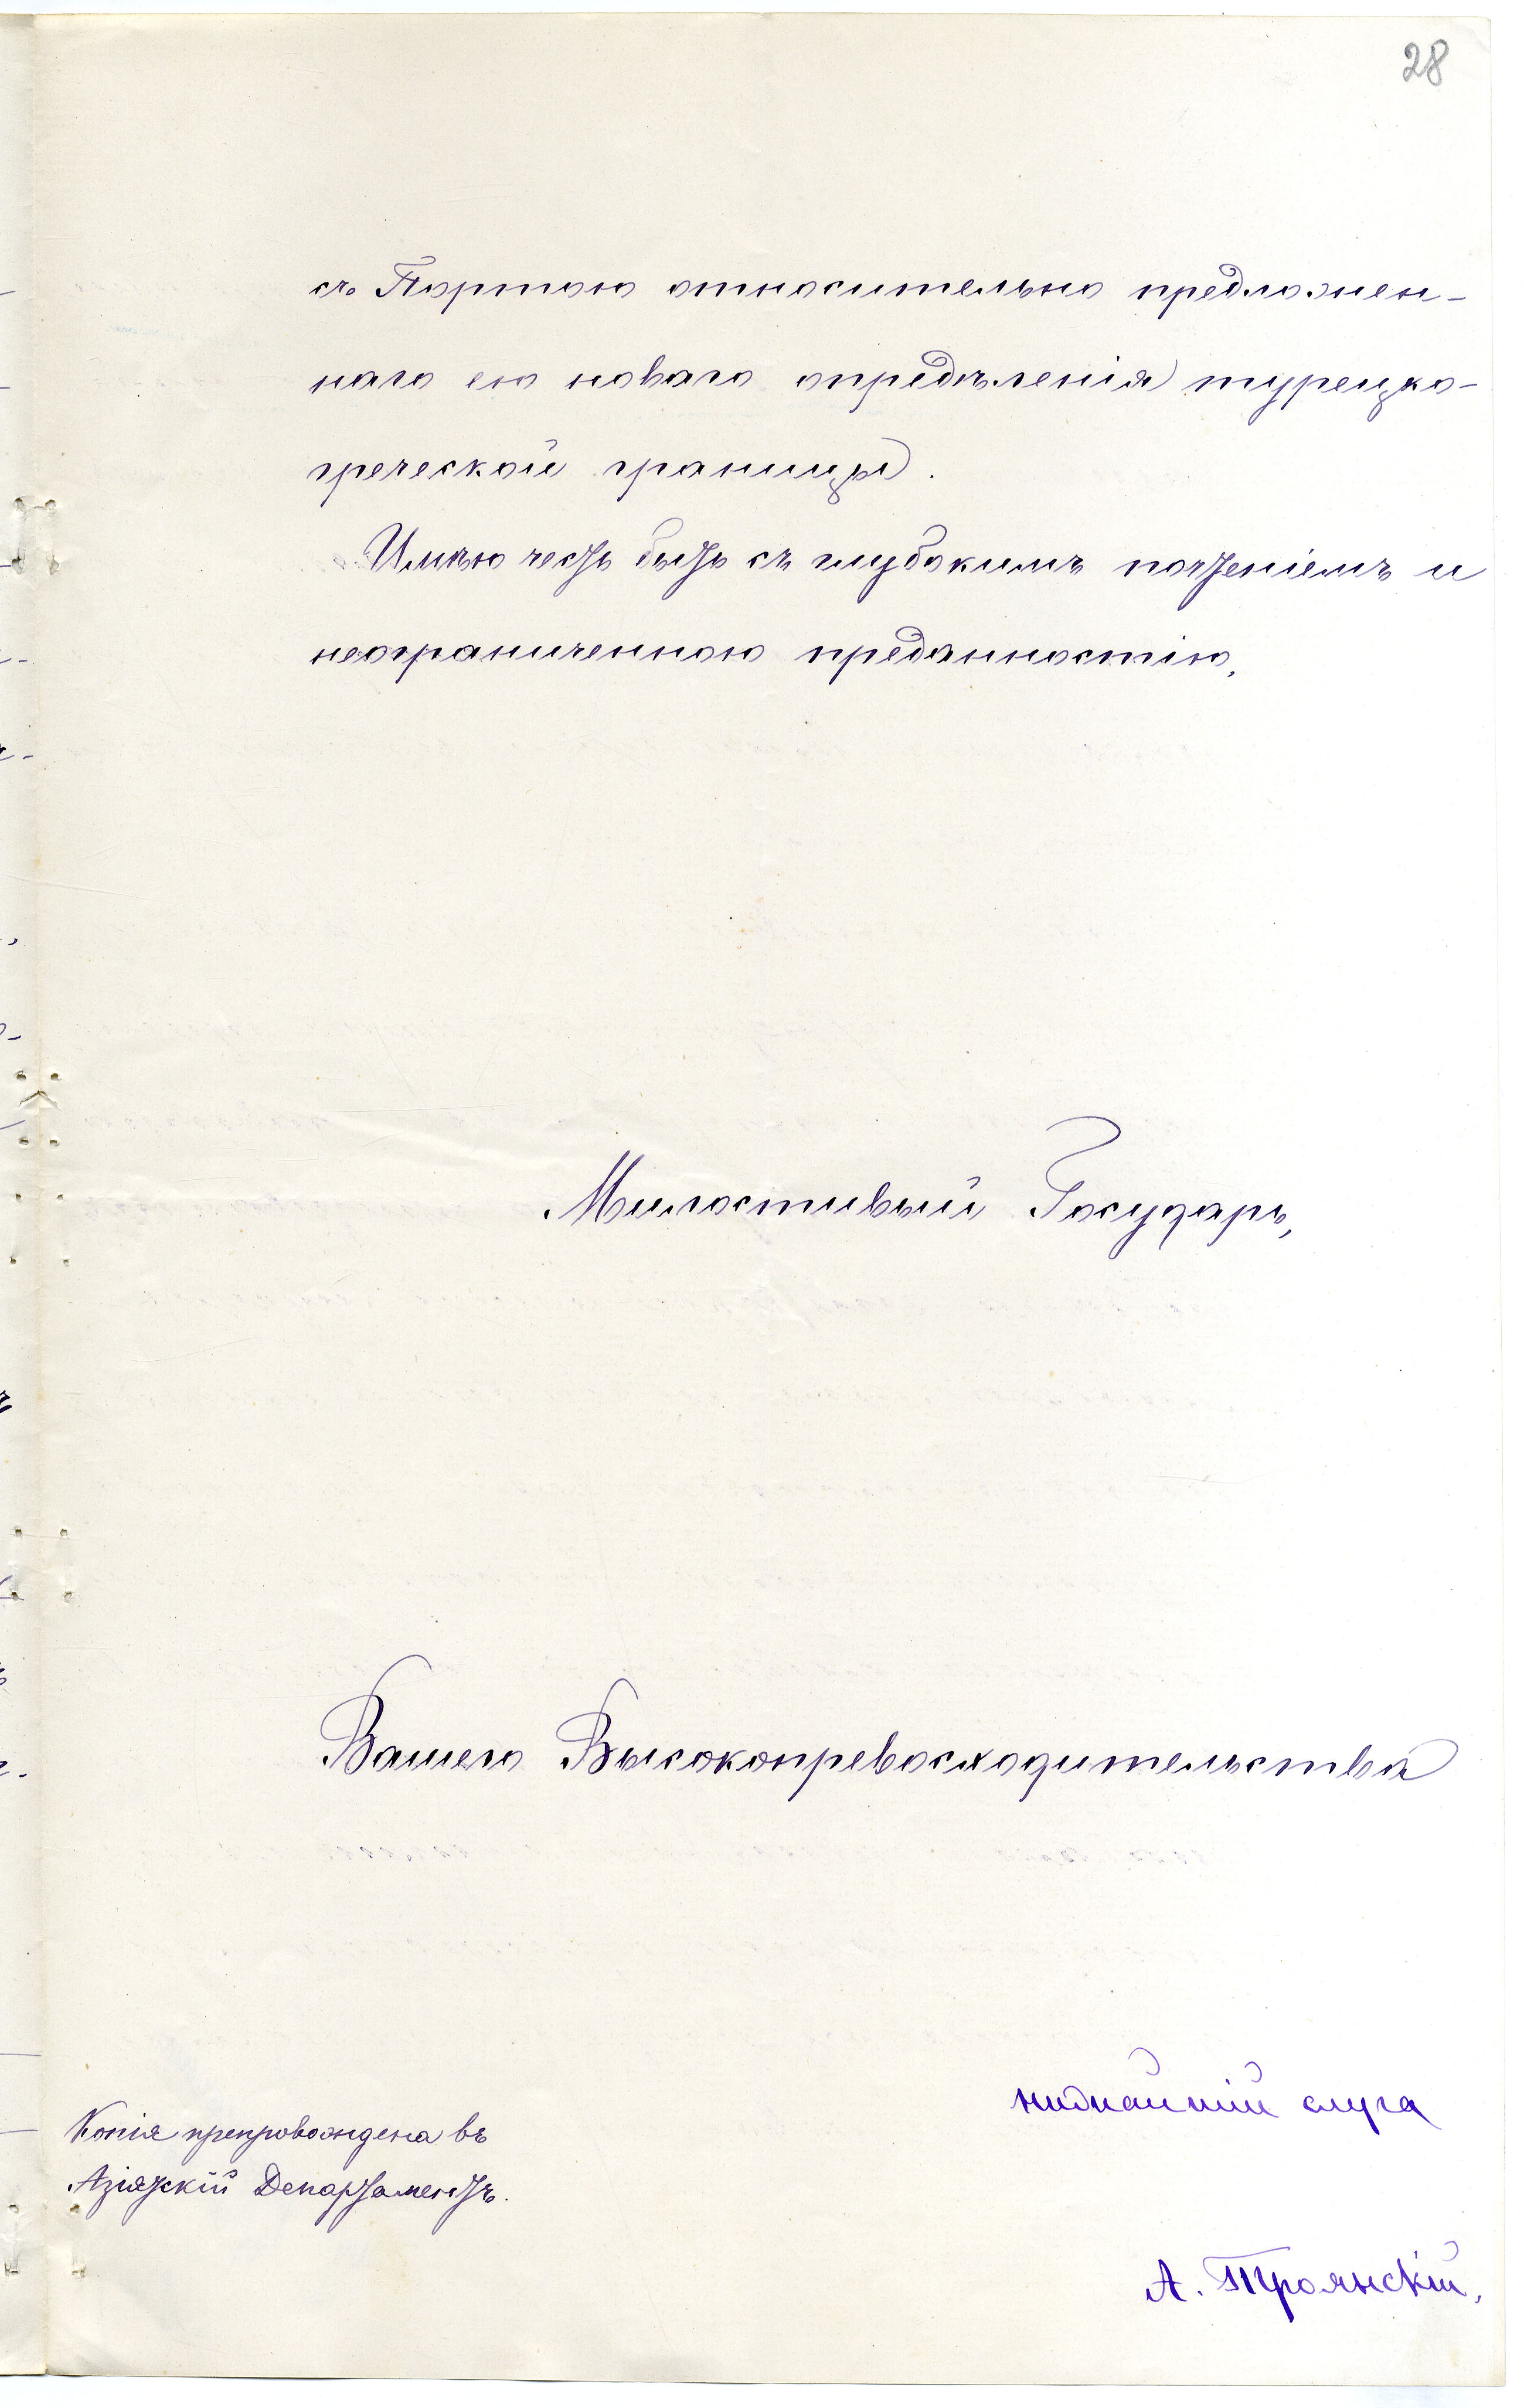 28
съ Портою относительно предложен-
наго ею новаго опредѣленія турецко-
греческой границы.
Имѣю честь быть съ глубокимъ почтеніемъ и
неограниченною преданностію,
Милостивый Государь,
Вашего Высокопревосходительства
нижайшій слуга
Копія препровождена въ
Азіятскій Департаментъ.
А. Троянскій.